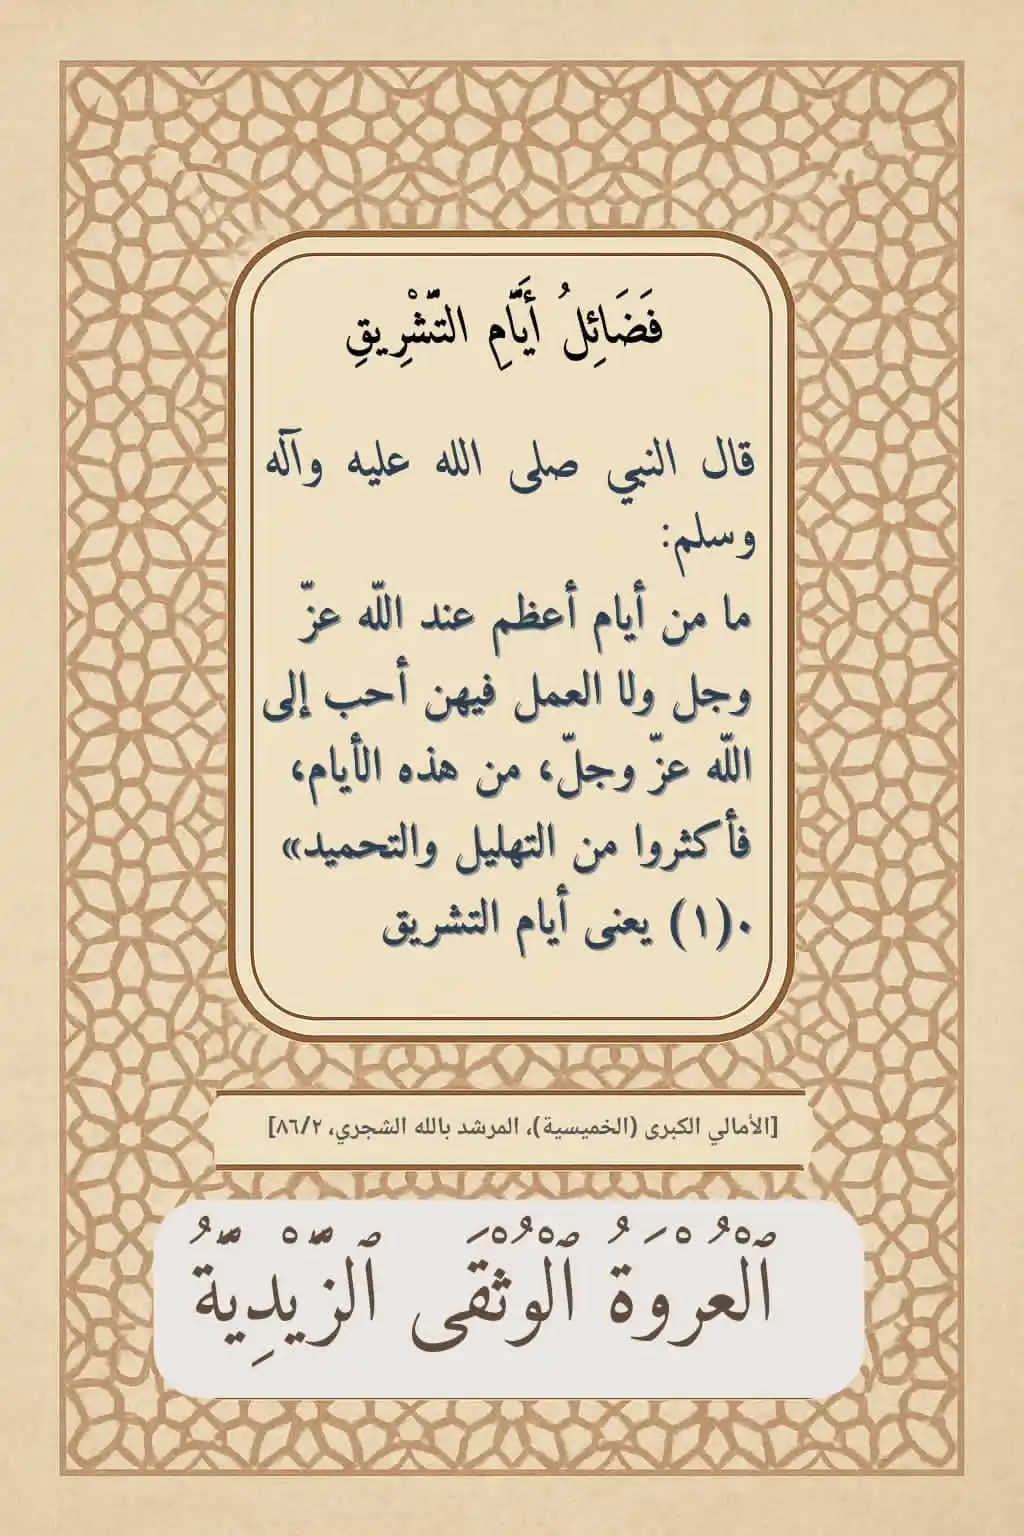 فَضَائِلُ أَيَّامِ التَّشْرِيقِ
قال النبي صلى الله عليه وآله
وسلم:
ما من أيام أعظم عند اللّه عزّ
وجل ولا العمل فيهن أحب إلى
اللّه عزّ وجلّ، من هذه الأيام،
فأكثروا من التهليل والتحميد»
٠(١) يعنى أيام التشريق
[الأمالي الكبرى (الخميسية)، المرشد بالله الشجري، ٨٦/٢]
ٱلْعُرْوَةُ ٱلْوُثْقَى ٱلزَّيْدِيَّةُ